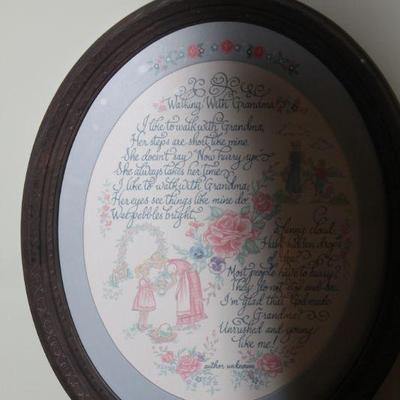 Walking With Grandma
I like to walk with Grandma,
Her steps are short like mine.
She doesn't say "Now hurry up"
She always takes her time.
I like to walk with Grandma,
Her eyes see things like mine do.
Wet pebbles bright,
a funny cloud,
Half hidden drops
Most people have to hurry,
They do not stop and see.
I'm glad that God made
Grandma
Unrushed and young
like me!
author unknown